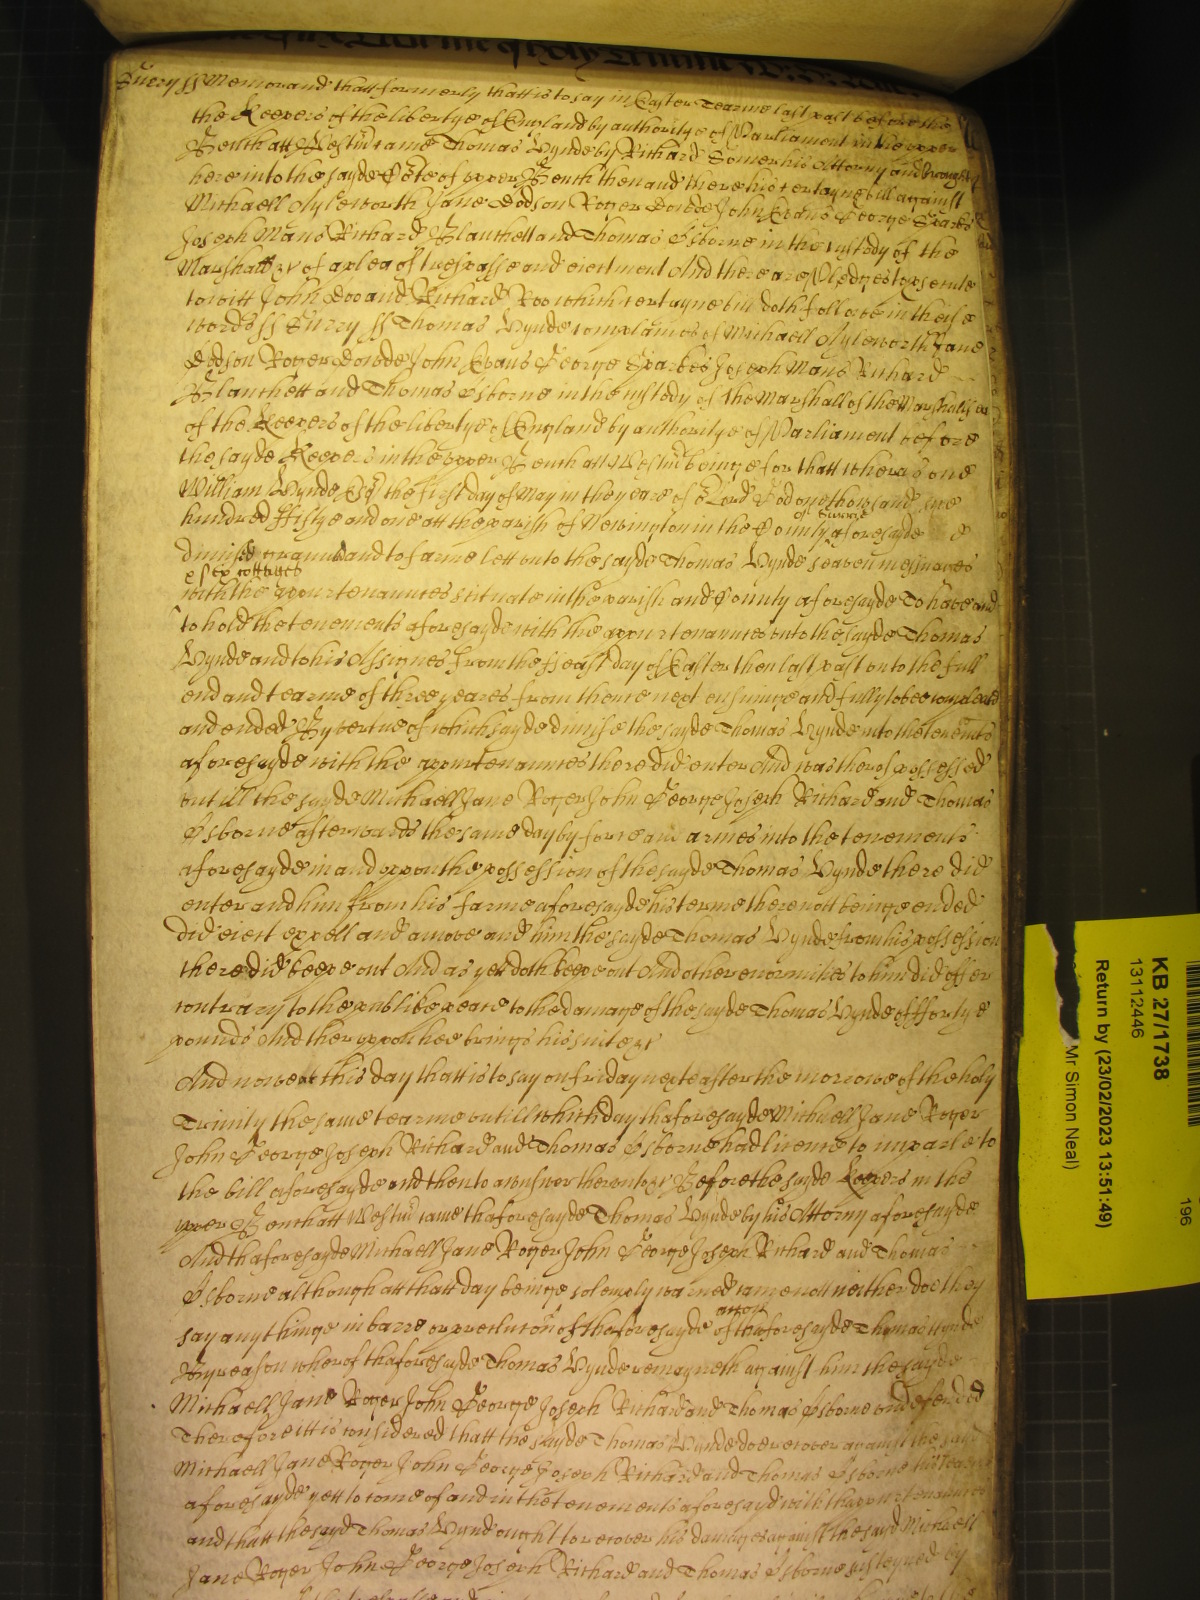 Surry ss Memorand thatt formerly thatt is to say in Easter Tearme last past before the
the Keepers of the libertye of England by authoritye of Parliament in the upper
Bench att Westm came Thomas Wynde by Richard Somer his Attorny and brought
here into the sayde Cote of upper Bench then and there his certayne bill against
Michaell Ayleworth Jane Dodson Roger Dowde John Evans George Sparkes
Joseph Mans Richard Blanchett and Thomas Osborne in the custody of the
Marshall &c of a plea of trespasse and eiectment And there are Pledges to prosecute
to witt John Doo and Richard Roo which certayne bill doth followe in theise
words ss Surry ss Thomas Wynde complaines of Michaell Ayleworth Jane
Dodson Roger Dowde John Evans George Sparkes Joseph Mans Richard
Blanchett and Thomas Osborne in the custody of the Marshall of the Marshalsea
of the Keepers of the libertye of England by authoritye of Parliament before
the sayde Keepers in the upper Bench att Westm beinge for thatt whereas one
William Wynde Esq the first day of May in the yeare of o Lord God one thowsand sixe
hundred fiftye and one att the parish of Newington in the County of Surrye aforesayde
dimised graunted and to farme lett unto the sayde Thomas Wynde seaven messuages
& six cottages
with the appurtenaunces scituate in the parish and County aforesayde To have and
to hold the tenements aforesayde with the appurtenaunces unto the sayde Thomas
Wynde and to his Assignes from the feast day of Easter then last past unto the full
end and tearme of three yeares from thence next ensuinge and fully to bee compleated
and ended By vertue of which sayde dimise the sayde Thomas Wynde into the tenemts
aforesayde with the appurtenaunces there did enter And was therof possessed
untill the sayde Michaell Jane Roger John George Joseph Richard and Thomas
Osborne afterwards the same day by force and armes into the tenements
aforesayde in and uppon the possession of the sayde Thomas Wynde there did
enter and him from his farme aforesayde his terme there nott beinge ended
did eiect expell and amove and him the sayde Thomas Wynde from his possession
there did keepe out And as yet doth keepe out And other enormities to him did offer
contrary to the publike peace to the damage of the sayde Thomas Wynde of fforty
pounds And theruppon hee brings his suite &c
And nowe att this day thatt is to say on friday next after the morrowe of the holy
Trinity the same tearme untill which day thaforesayde Michaell Jane Roger
John George Joseph Richard and Thomas Osborne had licence to imparle to
the bill aforesayde and then to aunswer therunto &c Before the sayde Keepers in the
upper Bench att Westm came thaforesayde Thomas Wynde by his Attorny aforesayde
And thaforesayde Michaell Jane Roger John George Joseph Richard and Thomas
Osborne although att thatt day beinge solemply warned came nott neither doe they
say any thinge in barre or preclucon of the foresayde accon of thaforesayde Thomas Wynde
By reason wherof thaforesayde Thomas Wynde remayneth against him the sayde
Michaell Jane Roger John George Joseph Richard and Thomas Osborne undefended
Therefore itt is considered thatt the sayde Thomas Wynde doe recover against the sayd
Michaell Jane Roger John George Joseph Richard and Thomas Osborne his tearme
aforesayde yett to come of and in the tenements aforesayd with thappurtenaunces
and thatt the sayd Thomas Wynd ought to recover his damages against the sayd Michaell
Jane Roger John George Joseph Richard and Thomas Osborne susteyned by
196
KB 27/1738
13112446
Return by (23/02/2023 13:51:49)
Mr Simon Neal)